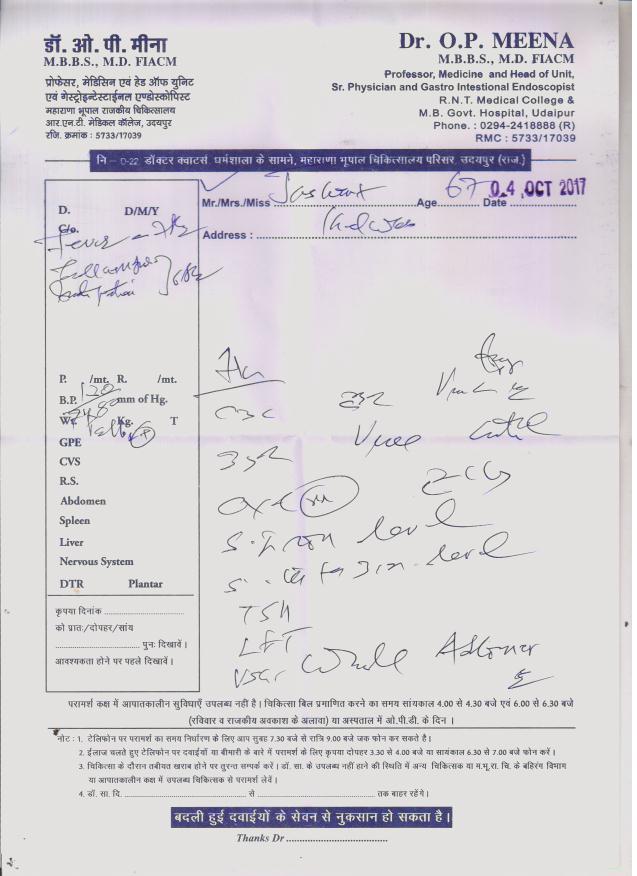 डॉ. ओ. पी. मीना
M.B.B.S., M.D. FIACM
प्रोफेसर, मेडिसिन एवं हेड ऑफ युनिट
एवं गेस्ट्रोइन्टेस्टाईनल एण्डोस्कोपिस्ट
महाराणा भूपाल राजकीय चिकित्सालय
आर.एन.टी. मेडिकल कॉलेज, उदयपुर
रजि. क्रमांक : 5733/17039
Dr. O.P. MEENA
M.B.B.S., M.D. FIACM
Professor, Medicine and Head of Unit,
Sr. Physician and Gastro Intestional Endoscopist
R.N.T. Medical College &
M.B. Govt. Hospital, Udaipur
Phone. : 0294-2418888 (R)
RMC : 5733/17039
नि – D-22, डॉक्टर क्वाटर्स, धर्मशाला के सामने, महाराणा भूपाल चिकित्सालय परिसर, उदयपुर (राज.)
Mr./Mrs./Miss Age 67 Date 04 OCT 2017
Address :
D. D/M/Y
C/o.
Fever
P. /mt. R. /mt.
B.P. 120 mm of Hg.
Wt. Kg. T
GPE
CVS
R.S.
Abdomen
Spleen
Liver
Nervous System
DTR Plantar
CBC
ECG
S. Iron level
level
TSH
LFT
Whole Abdomen
कृपया दिनांक
को प्रातः/दोपहर/सांय
पुनः दिखावें।
आवश्यकता होने पर पहले दिखावें।
परामर्श कक्ष में आपातकालीन सुविधाएँ उपलब्ध नहीं है। चिकित्सा बिल प्रमाणित करने का समय सांयकाल 4.00 से 4.30 बजे एवं 6.00 से 6.30 बजे
(रविवार व राजकीय अवकाश के अलावा) या अस्पताल में ओ.पी.डी. के दिन ।
नोट : 1. टेलिफोन पर परामर्श का समय निर्धारण के लिए आप सुबह 7.30 बजे से रात्रि 9.00 बजे जक फोन कर सकते है।
2. ईलाज चलते हुए टेलिफोन पर दवाईयों या बीमारी के बारे में परामर्श के लिए कृपया दोपहर 3.30 से 4.00 बजे या सायंकाल 6.30 से 7.00 बजे फोन करें।
3. चिकित्सा के दौरान तबीयत खराब होने पर तुरन्त सम्पर्क करें। डॉ. सा. के उपलब्ध नहीं हाने की स्थिति में अन्य चिकित्सक या म.भू.रा. चि. के बहिरंग विभाग
या आपातकालीन कक्ष में उपलब्ध चिकित्सक से परामर्श लेवें।
4. डॉ. सा. दि. से तक बाहर रहेंगे।
बदली हुई दवाईयों के सेवन से नुकसान हो सकता है।
Thanks Dr